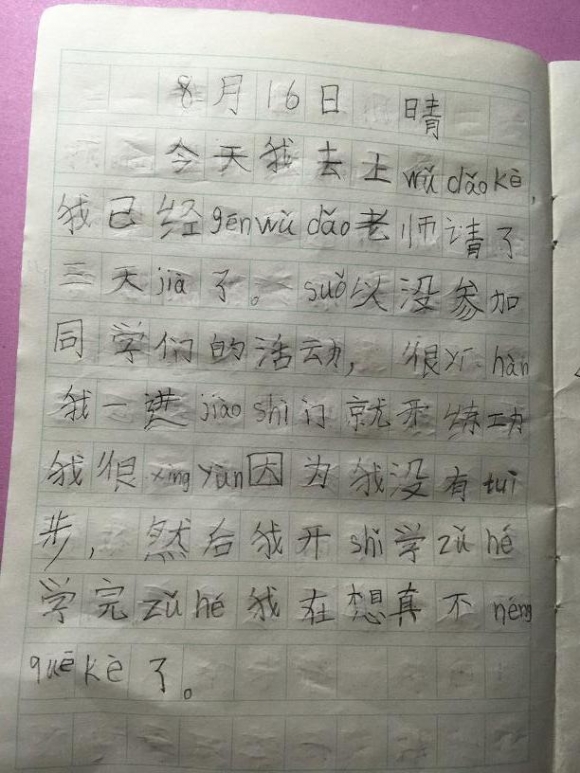 8月16日 晴
今天我去上wǔ dǎo kè,
我已经gēn wǔ dǎo老师请了
三天jià了。suǒ以没参加
同学们的活动,很yí hàn
我一进jiào shì门就来练功
我很xìng yùn因为我没有tuì
步,然后我开shǐ学zǔ hé
学完zǔ hé我在想真不néng
quē kè了。